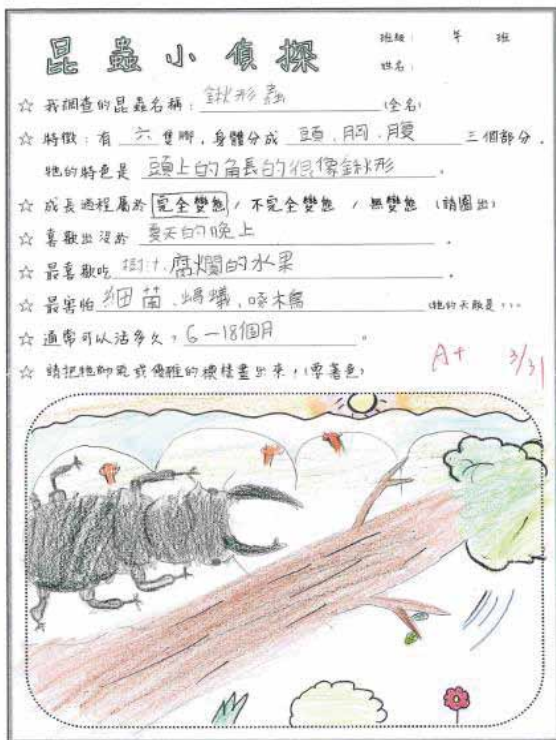 昆蟲小偵探
班級： 年 班
姓名：
☆ 我調查的昆蟲名稱：鍬形蟲 (全名)
☆ 特徵：有 六 隻腳，身體分成 頭、胸、腹 三個部分。
牠的特色是 頭上的角長的很像鍬形 。
☆ 成長過程屬於 完全變態 / 不完全變態 / 無變態 (請圈出)
☆ 喜歡出沒於 夏天的晚上 。
☆ 最喜歡吃 樹汁、腐爛的水果 。
☆ 最害怕 細菌、螞蟻、啄木鳥 (牠的天敵是...
☆ 通常可以活多久，6－18個月 。
☆ 請把牠帥氣或優雅的模樣畫出來，(要著色)
A+ 3/31